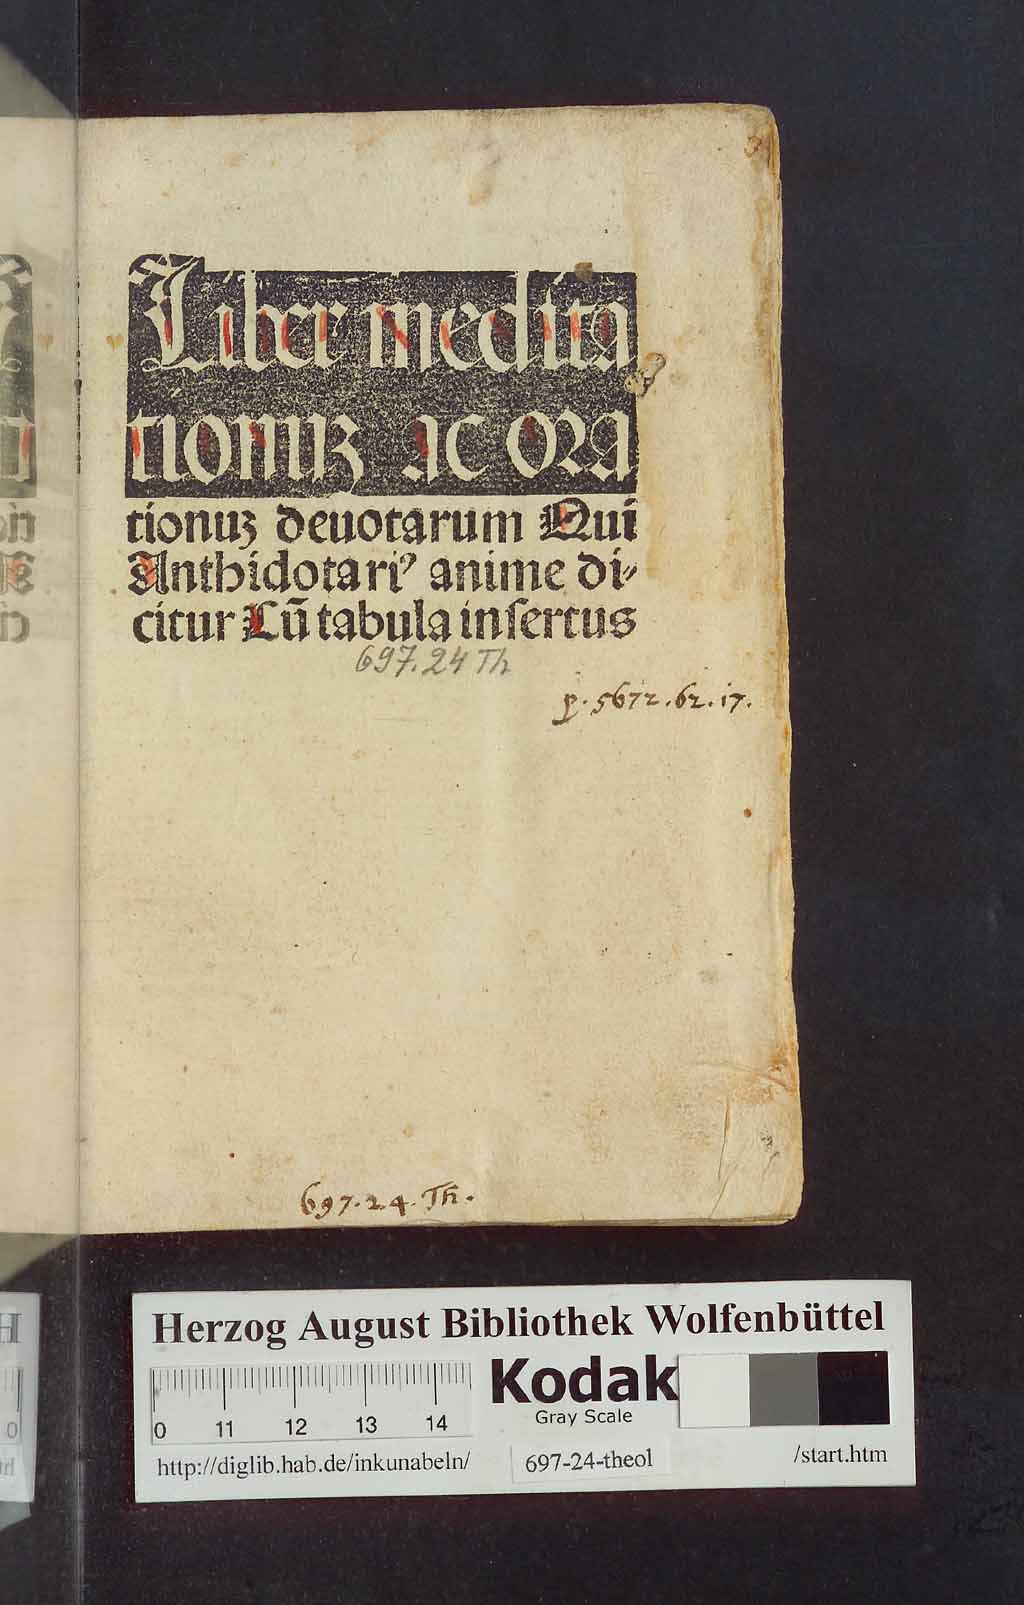 Liber medita
tionuꝫ ac ora
tionuꝫ deuotarum Qui
Anthidotariꝰ anime di⸗
citur Cū tabula insertus
697.24 Th
p. 5672.62.17.
697.24.Th.
Herzog August Bibliothek Wolfenbüttel
Kodak
Gray Scale
0 11 12 13 14
http://diglib.hab.de/inkunabeln/ 697-24-theol /start.htm